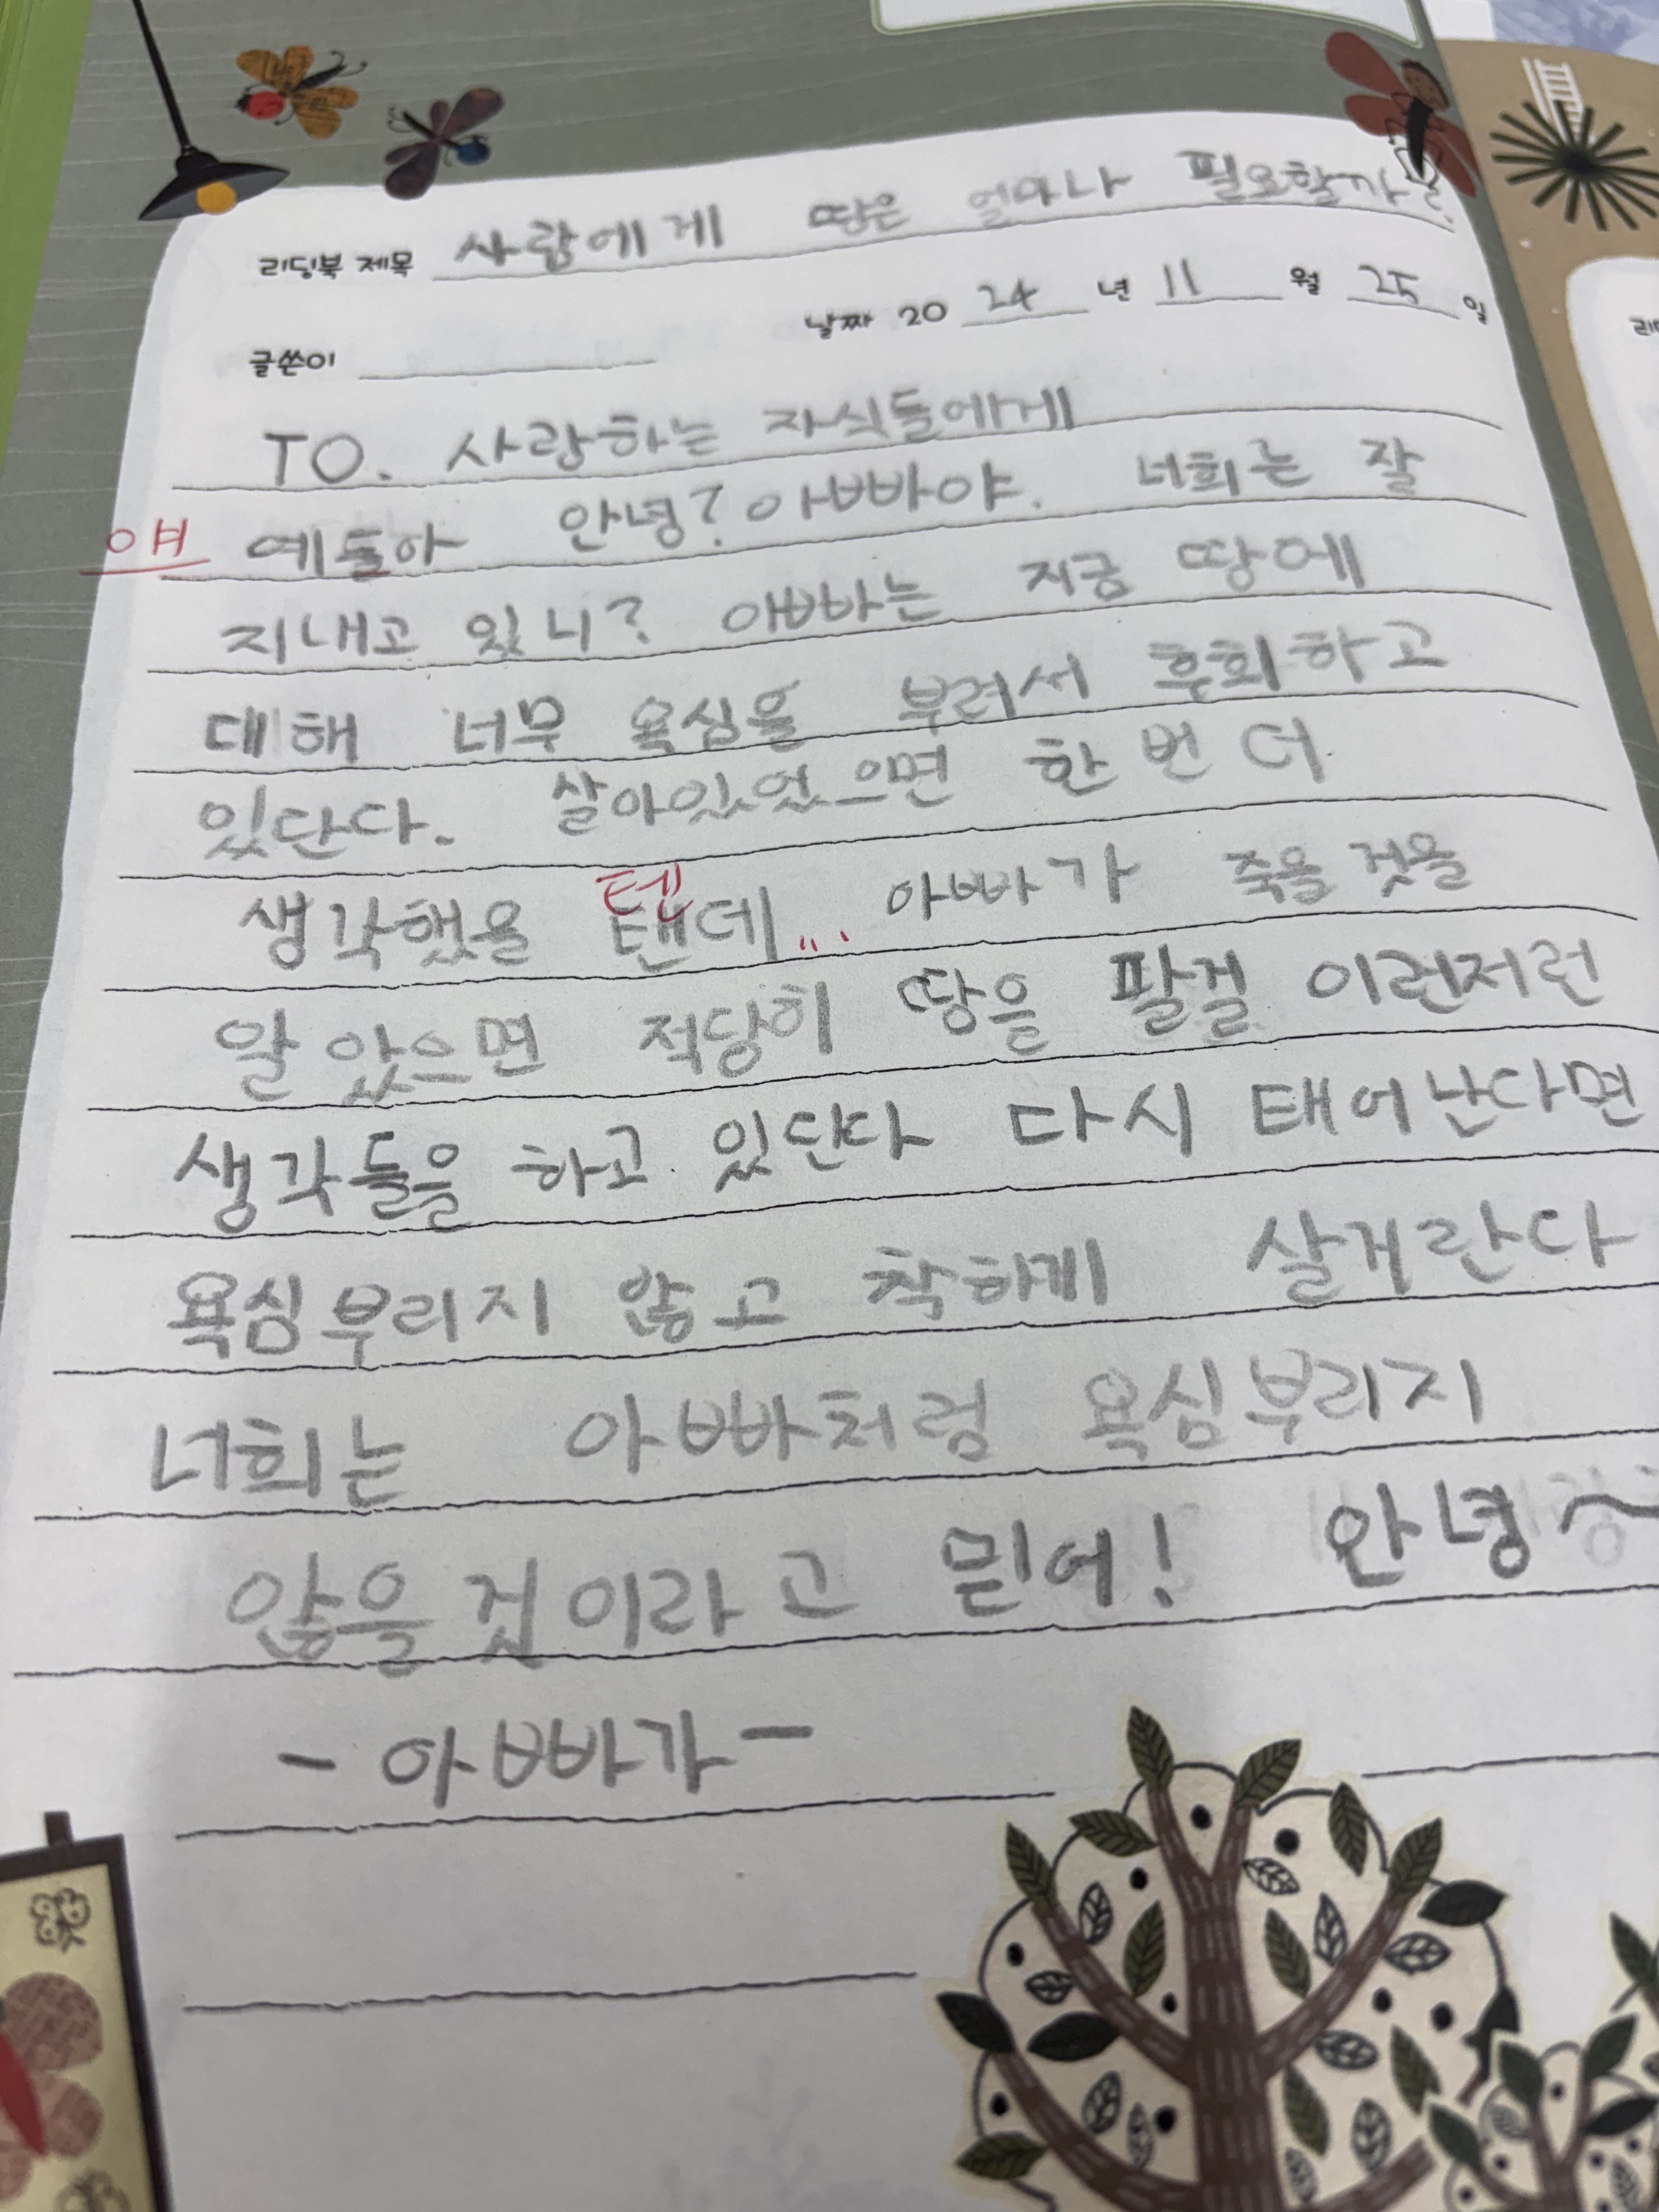 리딩북 제목 사람에게 땅은 얼마나 필요할까?
날짜 20 24 년 11 월 25 일
글쓴이
TO. 사랑하는 자식들에게
얘
예들아 안녕? 아빠야. 너희는 잘
지내고 있니? 아빠는 지금 땅에
대해 너무 욕심을 부려서 후회하고
있단다. 살아있었으면 한 번 더
텐
생각했을 탠데... 아빠가 죽을 것을
알았으면 적당히 땅을 팔걸 이런저런
생각들을 하고 있단다 다시 태어난다면
욕심부리지 않고 착하게 살거란다
너희는 아빠처럼 욕심부리지
않을 것이라고 믿어! 안녕~
- 아빠가 -